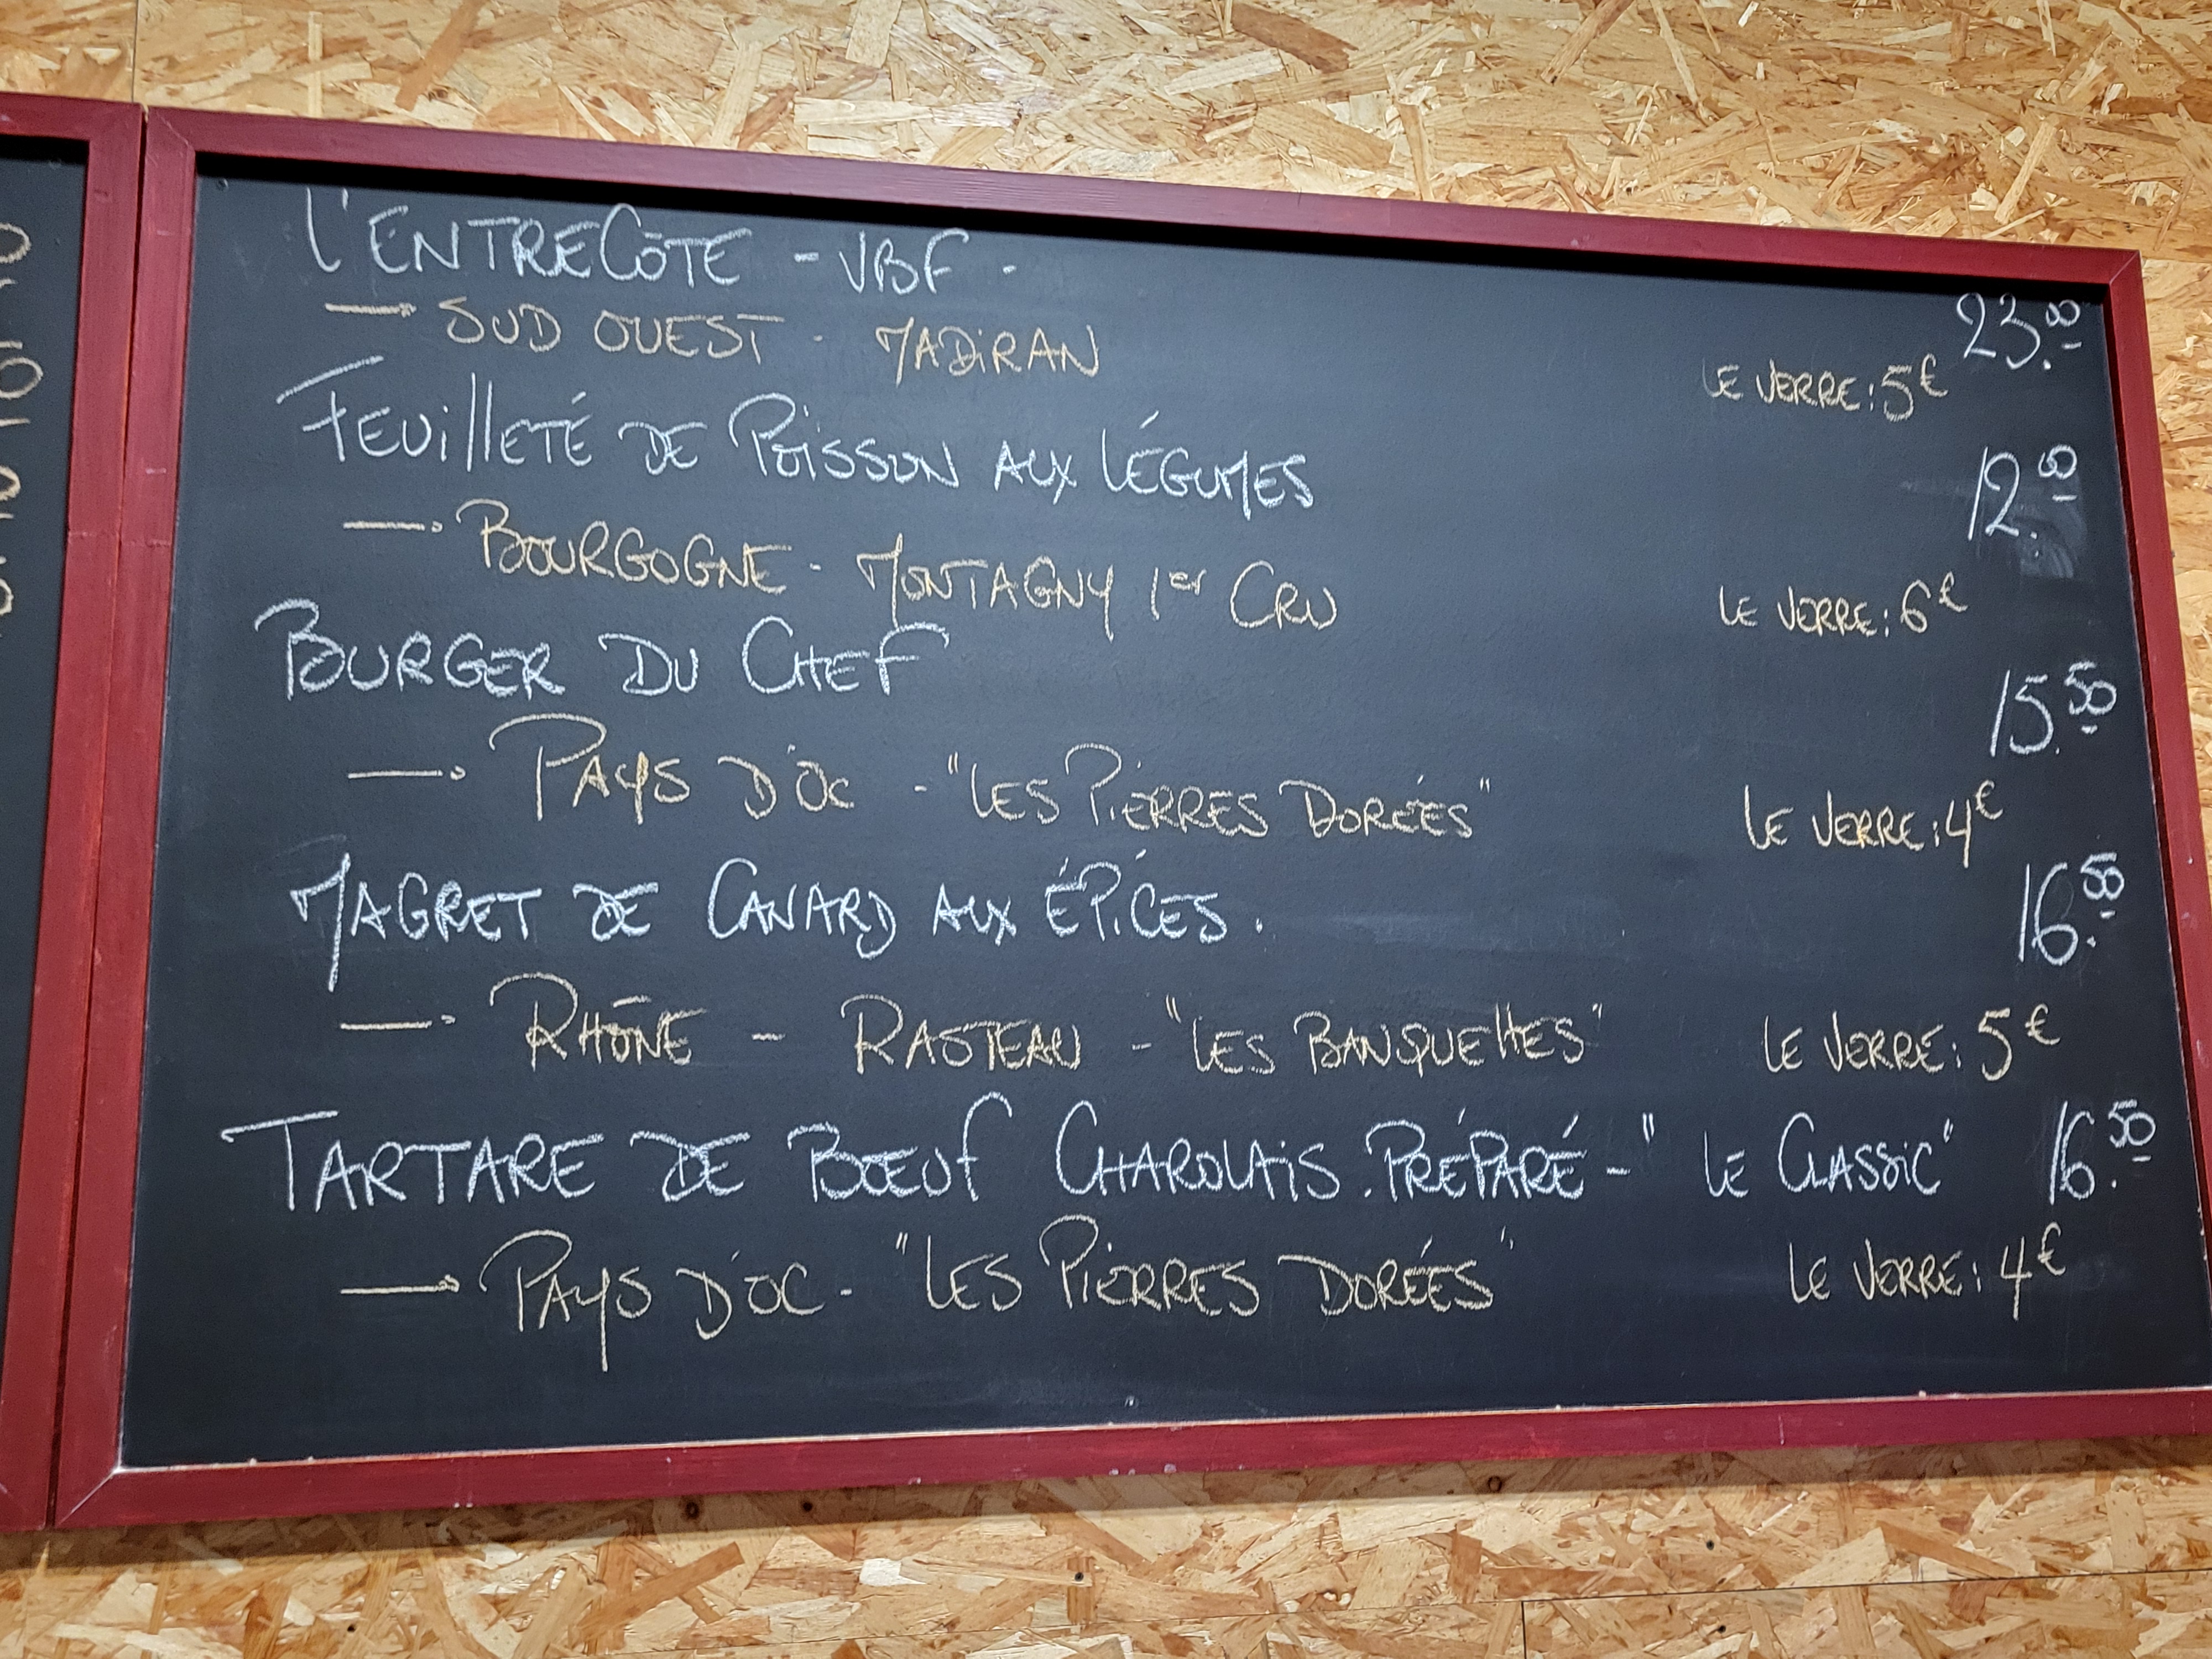 L'ENTRECÔTE - VBF - 23.00
→ SUD OUEST - MADIRAN LE VERRE: 5€
FEUILLETÉ DE POISSON AUX LÉGUMES 12.00
→ BOURGOGNE - MONTAGNY 1er CRU LE VERRE: 6€
BURGER DU CHEF 15.50
→ PAYS D'OC - "LES PIERRES DORÉES" LE VERRE: 4€
MAGRET DE CANARD AUX ÉPICES. 16.50
→ RHÔNE - RASTEAU - "LES BANQUETTES" LE VERRE: 5€
TARTARE DE BŒUF CHAROLAIS. PRÉPARÉ - "LE CLASSIC" 16.50
→ PAYS D'OC - "LES PIERRES DORÉES" LE VERRE: 4€